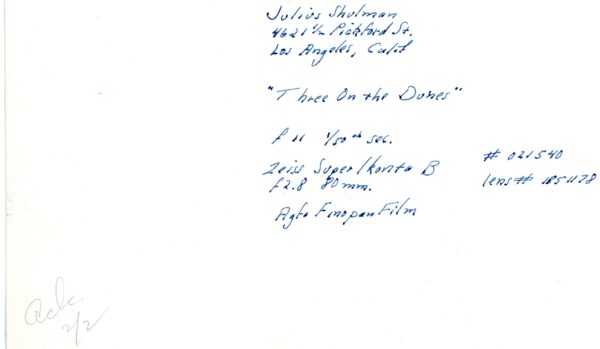 Julius Shulman
4621 1/2 Pickford St.
Los Angeles, Calif
"Three On the Dunes"
f 11 1/50 th sec.
Zeiss Super Ikonta B # 021540
f2.8 80 mm. lens #
Agfa Finopan Film
Ack.
2/2